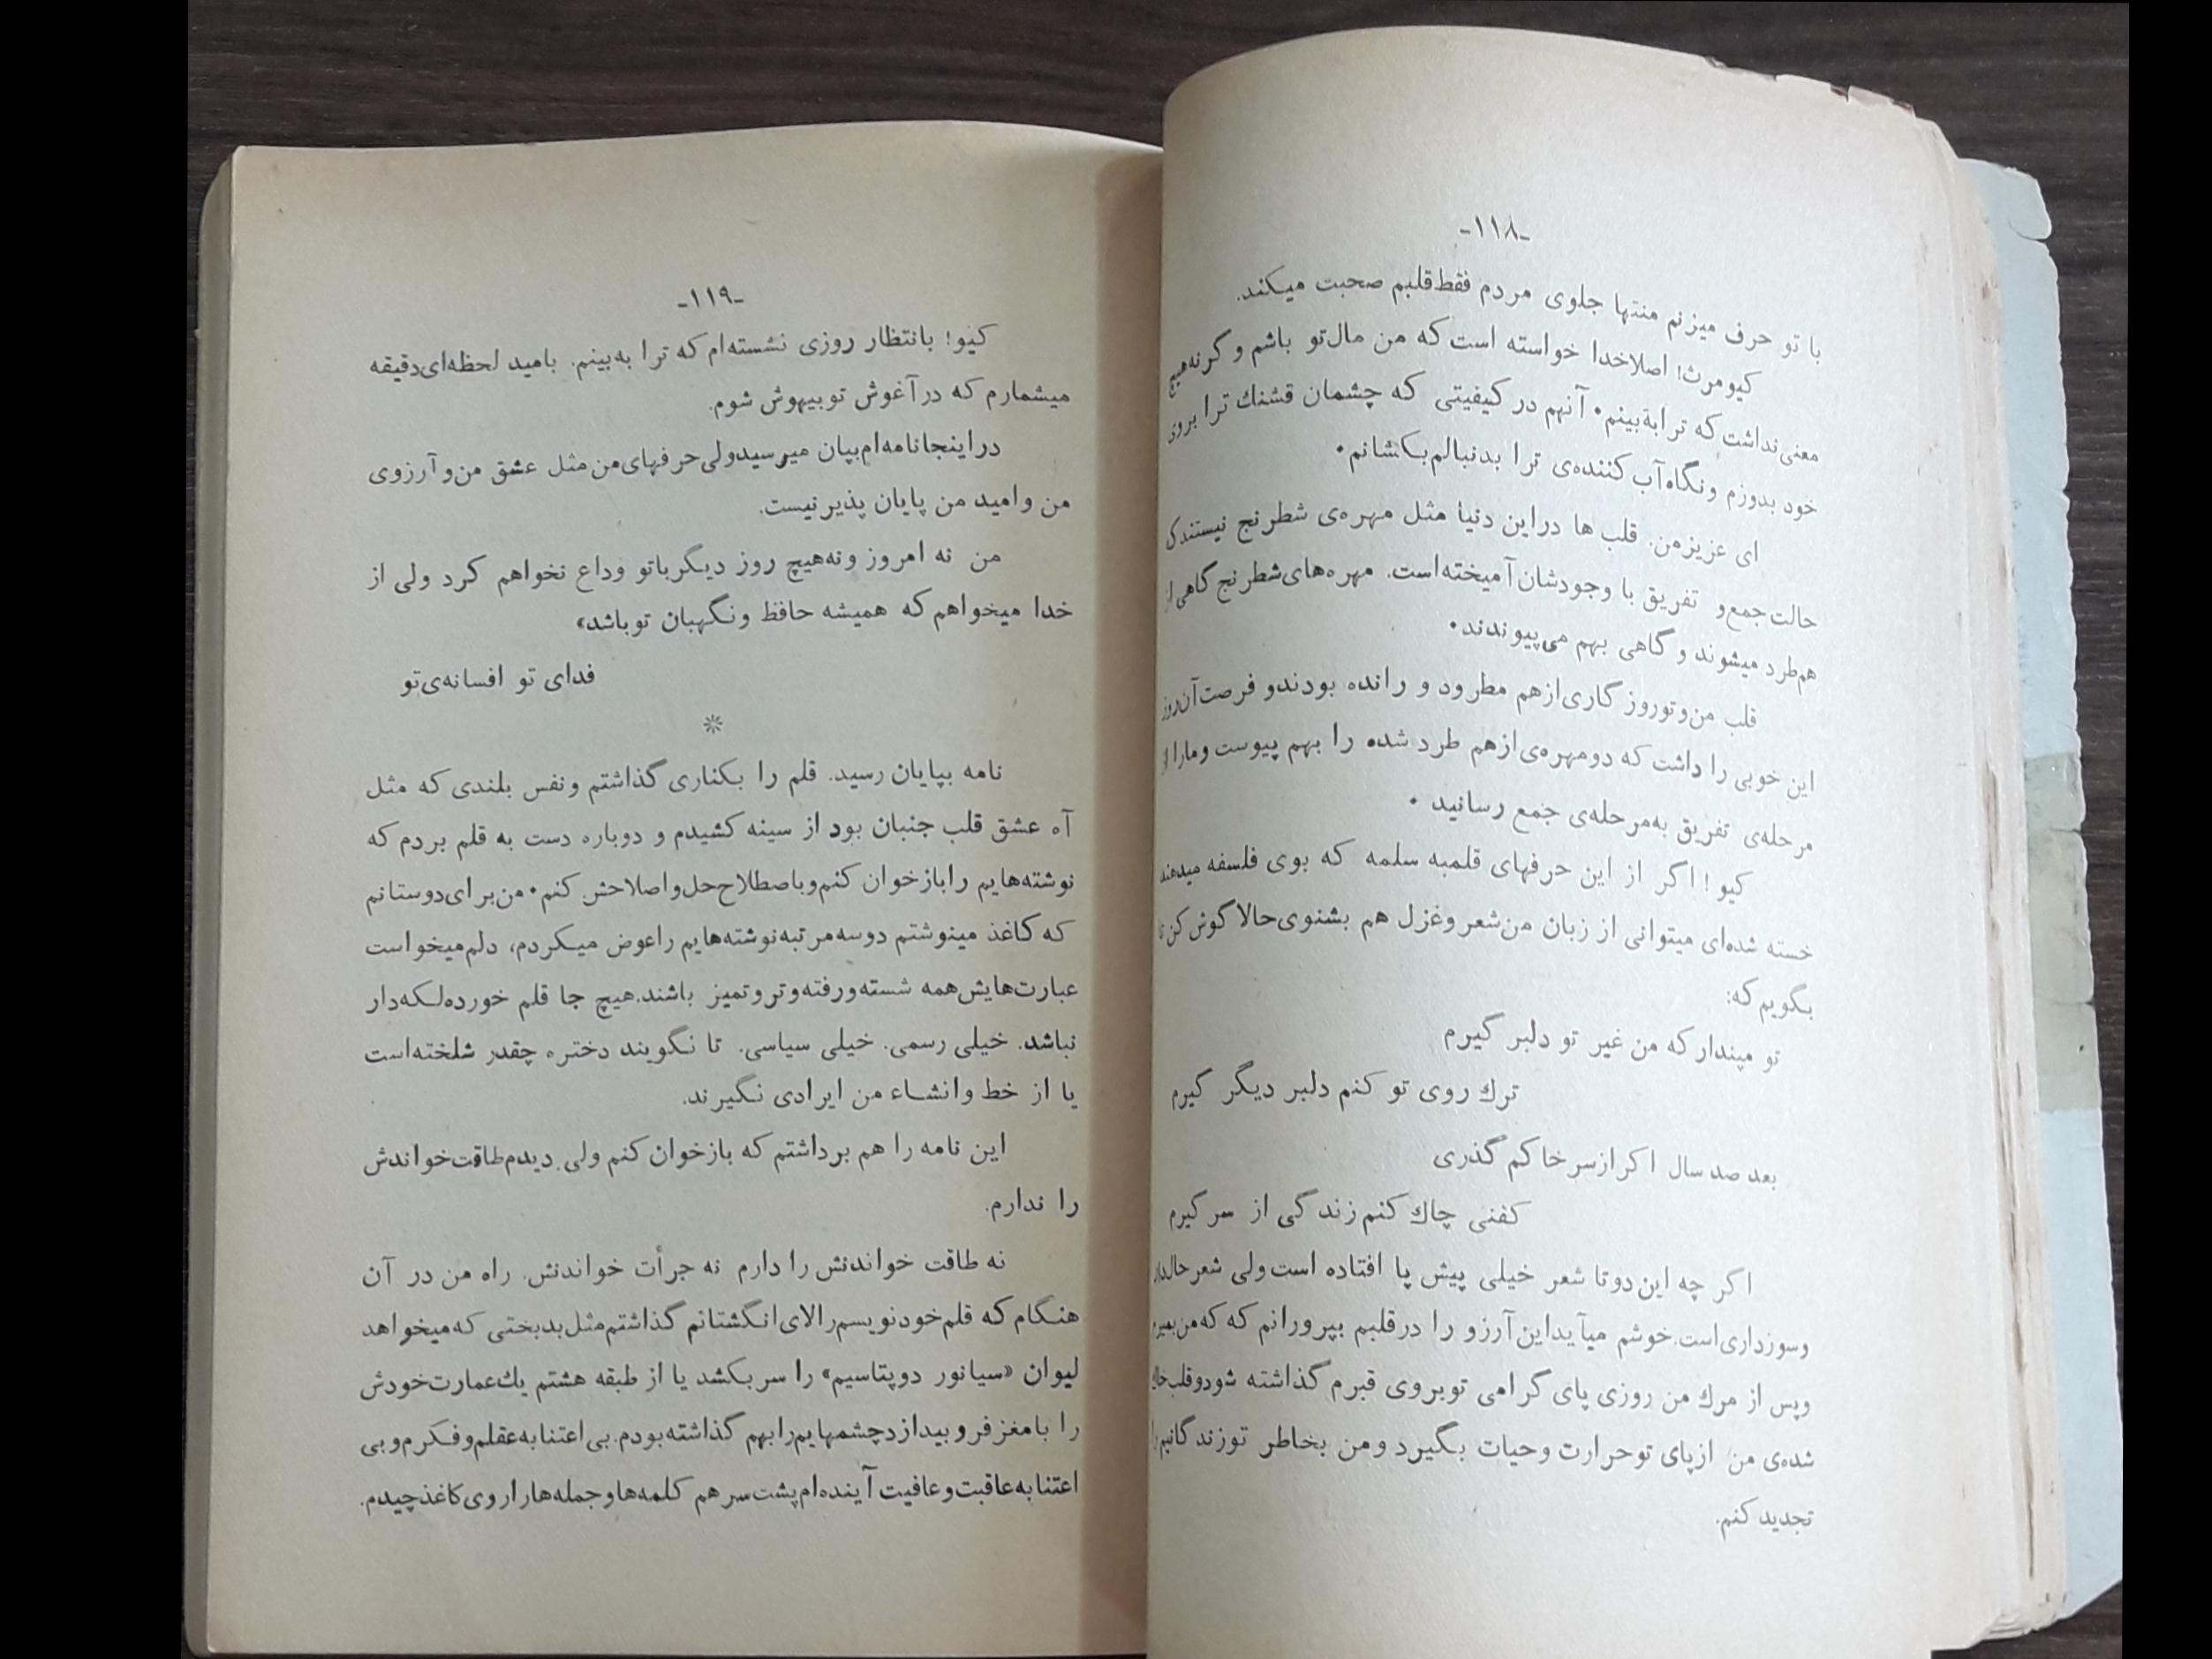 -۱۱۸-
با تو حرف میزنم منتها جلوی مردم فقط قلبم صحبت میکند.
کیومرث! اصلا خدا خواسته است که من مال تو باشم و گرنه هیچ
معنی نداشت که ترا به‌بینم. آنهم در کیفیتی که چشمان قشنك ترا بروی
خود بدوزم و نگاه آب کننده‌ی ترا بدنبالم بکشانم.
ای عزیز من. قلب ها در این دنیا مثل مهره‌ی شطرنج نیستند
حالت جمع و تفریق با وجودشان آمیخته است. مهره‌های شطرنج گاهی از
هم طرد میشوند و گاهی بهم می‌پیوندند.
قلب من و تو روزگاری از هم مطرود و رانده بودند و فرصت آن روز
این خوبی را داشت که دو مهره‌ی از هم طرد شده را بهم پیوست و ما را از
مرحله‌ی تفریق به مرحله‌ی جمع رسانید.
کیو! اگر از این حرفهای قلمبه سلمبه که بوی فلسفه میدهند
خسته شده‌ای میتوانی از زبان من شعر و غزل هم بشنوی حالا گوش کن تا
بگویم که:
تو مپندار که من غیر تو دلبر گیرم
ترك روی تو کنم دلبر دیگر گیرم
بعد صد سال اگر از سر خاکم گذری
کفنی چاك کنم زندگی از سر گیرم
اگر چه این دو تا شعر خیلی پیش پا افتاده است ولی شعر حالدار
و سوزداری است. خوشم میآید این آرزو را در قلبم بپرورانم که که من بمیرم
و پس از مرك من روزی پای گرامی تو بروی قبرم گذاشته شود و قلب خاك
شده‌ی من از پای تو حرارت و حیات بگیرد و من بخاطر تو زندگانیم را
تجدید کنم.
-۱۱۹-
کیو! بانتظار روزی نشسته‌ام که ترا به‌بینم. بامید لحظه‌ای دقیقه
میشمارم که در آغوش تو بیهوش شوم.
در اینجا نامه‌ام بپان میرسید ولی حرفهای من مثل عشق من و آرزوی
من و امید من پایان پذیر نیست.
من نه امروز و نه هیچ روز دیگر با تو وداع نخواهم کرد ولی از
خدا میخواهم که همیشه حافظ و نگهبان تو باشد»
فدای تو افسانه‌ی تو
※
نامه بپایان رسید. قلم را بکناری گذاشتم و نفس بلندی که مثل
آه عشق قلب جنبان بود از سینه کشیدم و دوباره دست به قلم بردم که
نوشته‌هایم را بازخوان کنم و باصطلاح حل و اصلاحش کنم. من برای دوستانم
که کاغذ مینوشتم دو سه مرتبه نوشته‌هایم را عوض میکردم، دلم میخواست
عبارت‌هایش همه شسته و رفته و تر و تمیز باشند. هیچ جا قلم خورده لکه‌دار
نباشد. خیلی رسمی. خیلی سیاسی. تا نگویند دختره چقدر شلخته است
یا از خط و انشاء من ایرادی نگیرند.
این نامه را هم برداشتم که بازخوان کنم ولی دیدم طاقت خواندش
را ندارم.
نه طاقت خواندنش را دارم نه جرأت خواندنش. راه من در آن
هنگام که قلم خودنویسم را لای انگشتانم گذاشتم مثل بدبختی که میخواهد
لیوان «سیانور دوپتاسیم» را سر بکشد یا از طبقه هشتم یك عمارت خودش
را با مغز فرو بیدازد چشمهایم را بهم گذاشته بودم. بی اعتنا به عقلم و فکرم و بی
اعتنا به عاقبت و عافیت آینده‌ام پشت سر هم کلمه‌ها و جمله‌ها را روی کاغذ چیدم.